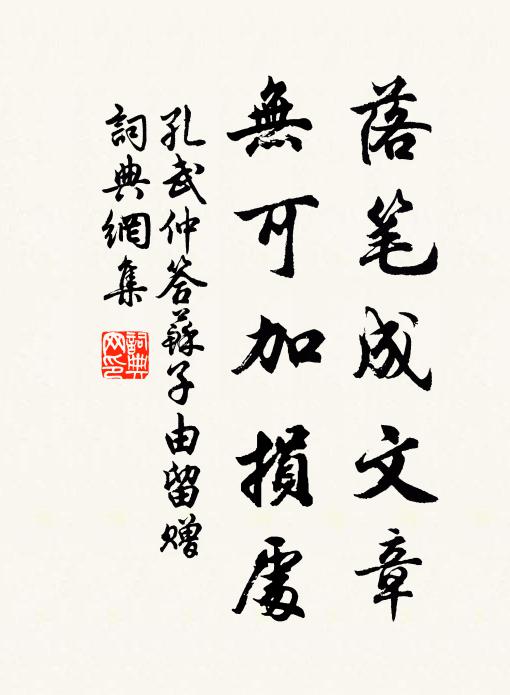 落笔成文章
無可加損處
孔武仲答蘇子由留贈
詞典網集
詞典网印